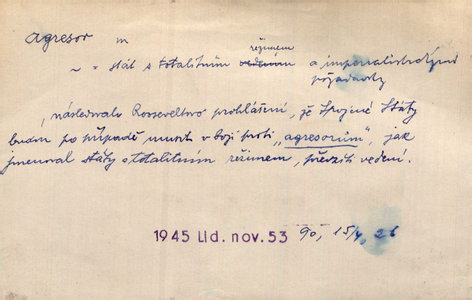 agresor m
režimem
~ = stát s totalitním vedením a imperialistickými
požadavky
, následovalo Rooseveltovo prohlášení, že Spojené Státy
budou po případě muset v boji proti "agresorům", jak
jmenoval státy s totalitním režimem, převzíti vedení.
1945 Lid. nov. 53 90, 15/4, 26